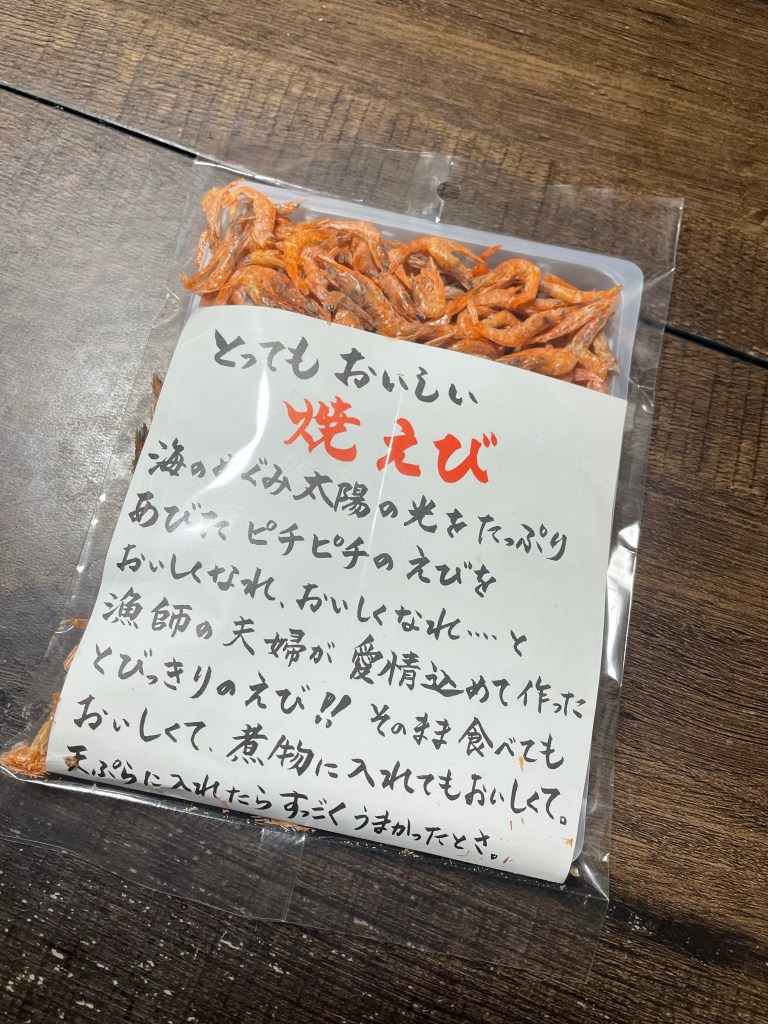 とってもおいしい
焼えび
海のめぐみ太陽の光をたっぷり
あびた ピチピチのえびを
おいしくなれ、おいしくなれ‥‥と
漁師の夫婦が愛情込めて作った
とびっきりのえび!! そのまま食べても
おいしくて、煮物に入れてもおいしくて。
天ぷらに入れたらすっごくうまかったとさ。